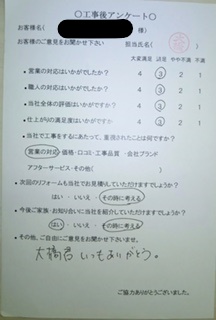 〇工事後アンケート〇
お客様名( 様)
お客様のご意見をお聞かせ下さい 担当氏名( )
大変満足 満足 やや不満 不満
・営業の対応はいかがでしたか? 4 3 2 1
・職人の対応はいかがでしたか? 4 3 2 1
・当社全体の評価はいかがですか? 4 3 2 1
・仕上がりの満足度はいかがですか 4 3 2 1
・当社で工事をするにあたって、重視されたことは何ですか?
営業の対応・価格・口コミ・工事品質・会社ブランド
アフターサービス・その他( )
・次回のリフォームも当社でお見積りしていただけますでしょうか?
はい・いいえ・その時に考える
・今後ご家族・お知り合いに当社を紹介していただけますでしょうか?
はい・いいえ・その時に考える
・その他、ご自由にご意見をお聞かせ下さいませ。
大橋君 いつもありがとう。
ご協力ありがとうございました。